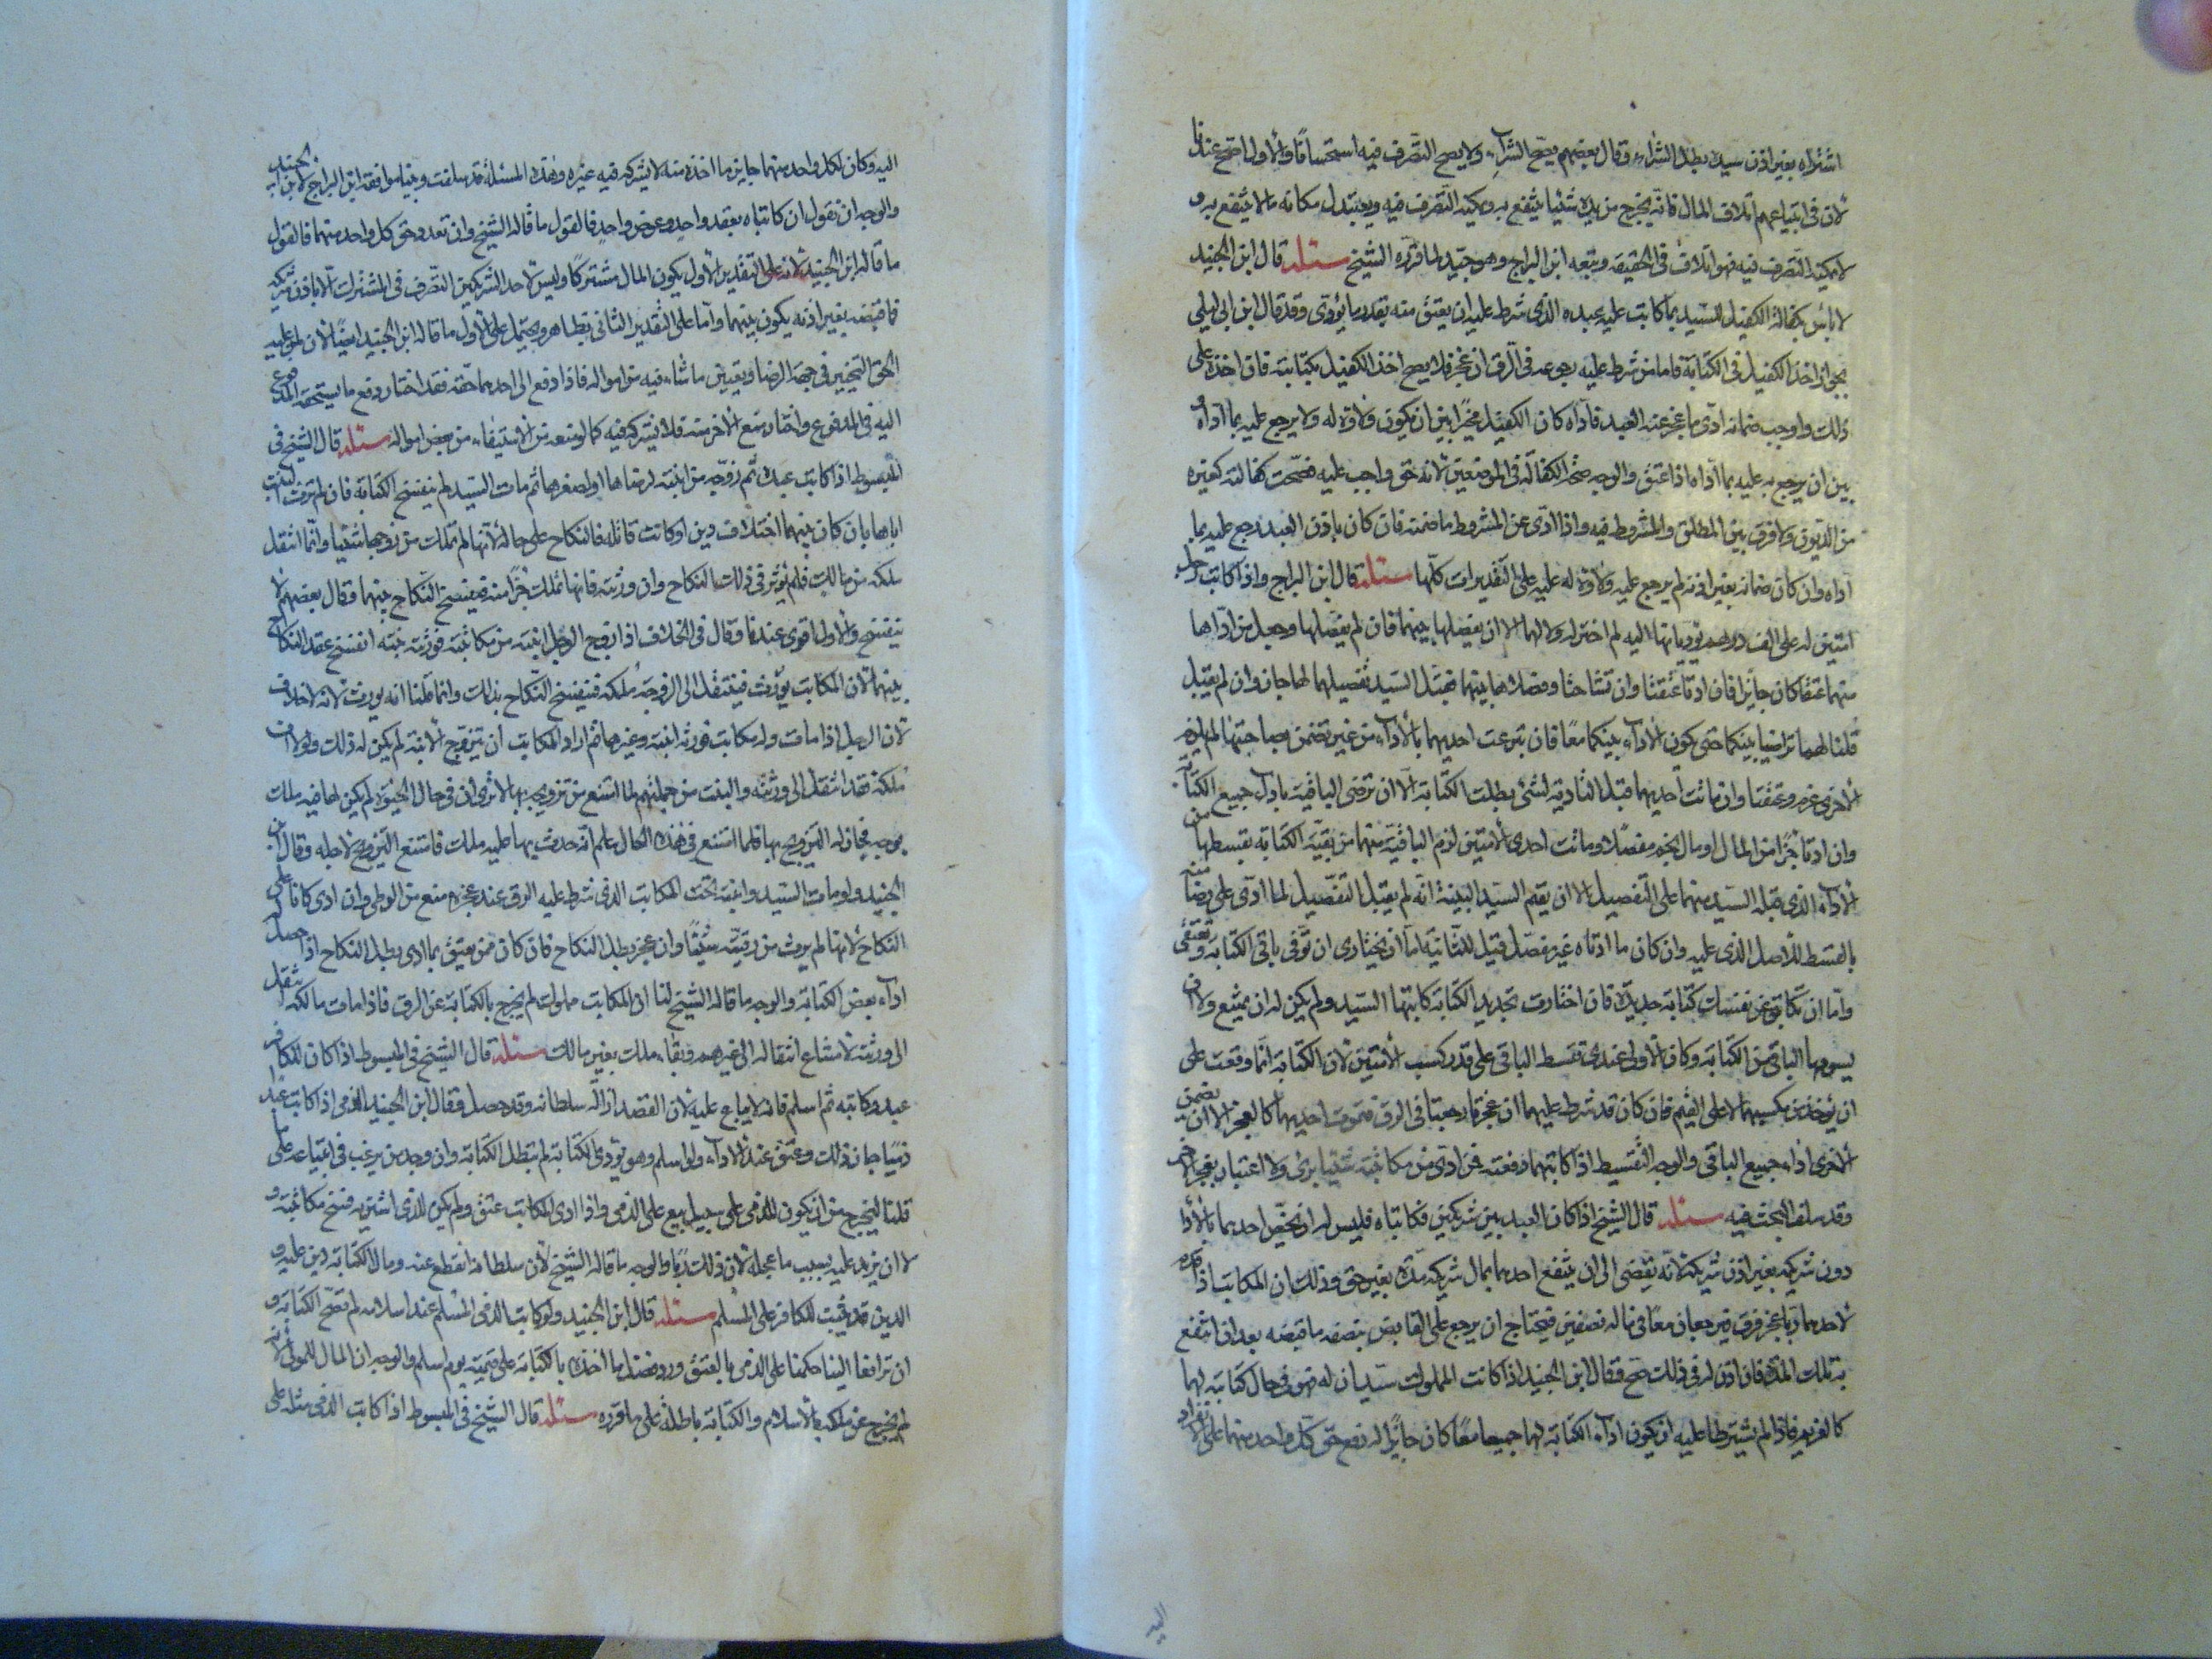 اشتراه بغير اذن سيده بطل الشراء وقال بعضهم يصح الشراء ولا يصح التصرف فيه استحسانا والاول اصح عندنا
لان في ابتياعهم اتلاف المال فانه يخرج من يده شيئا ينتفع به ويمكنه التصرف فيه ويستبدل مكانه ما لا ينتفع به و
لا يمكنه التصرف فيه فهو اتلاف في الحقيقة وتبعه ابن البراج وهو جيد لما قرره الشيخ مسئلة قال ابن الجنيد
لا باس بكفالة الكفيل للسيد بما كاتب عليه عبده الذي شرط عليه ان يعتق منه بقدر ما يؤدي وقد قال ابن ابي ليلى
يجوز اخذ الكفيل في الكتابة فاما من شرط عليه رجوعه في الرق ان عجز فلا يصح اخذ الكفيل بكتابته فان اخذ على
ذلك واوجب ضمانه ادى ما عجز عنه العبد فاداه كان الكفيل مخيرا بين ان يكون ولاؤه له ولا يرجع عليه بما اداه و
بين ان يرجع به عليه بما اداه اذا عتق والوجه صحة الكفالة في الموضعين لانه حق واجب عليه فصحت كفالته كغيره
من الديون ولا فرق بين المطلق والمشروط فيه واذا ادى عن المشروط ما ضمنه فان كان باذن العبد رجع عليه بما
اداه وان كان ضمانه بغير اذنه لم يرجع عليه ولا ولاء له عليه على التقديرات كلها مسئلة قال ابن البراج واذا كاتب رجل
امتين له على الف درهم يؤديانها اليه لم اختر له ولا لهما الا ان يفصلها بينهما فان لم يفصلها وجعل من اداها
منهما عتقا كان جائزا فان ادتا عتقتا وان تشاحتا وفضلاها بينهما فقبل السيد تفصيلهما لها جاز وان لم يقبل
قلنا لهما تراضيا بينكما حتى يكون الاداء بينكما معا فان تبرعت احديهما بالاداء من غير تضمن صاحبتها لم يلزم
الاخرى غرم وعتقتا وان ماتت احديهما قبل التادية لشئ بطلت الكتابة الا ان ترضى الباقية باداء جميع الكتابة
وان ادتا جزا من المال او مال النجوم مفصلا وماتت احدى الامتين لزم الباقية منهما من بقية الكتابة بقسطها من
الاداء الذي قبله السيد منهما على التفصيل الا ان يقيم السيد البينة انه لم يقبل التفصيل لما ادى على رضا منه
بالقسط للاصل الذي عليه وان كان ما ادتاه غير مفصل قيل للثانية اما ان تختاري ان توفي باقي الكتابة وتعتقي
واما ان تكاتبي عن نفسك كتابة جديدة فان اختارت تجديد الكتابة كاتبها السيد ولم يكن له ان يمتنع ولا ان
يسومها الباقي من الكتابة وكان الاولى عندي تقسط الباقي على قدر كسب الامتين لان الكتابة انما وقعت على
ان يؤخذ من كسبهما لا على القيم فان كان قد شرط عليهما ان عجزتا رجعتا في الرق فموت احديهما كالعجز الا ان تضمن
الاخرى اداء جميع الباقي والوجه التقسيط اذا كاتبهما دفعة فمن ادى من مكاتبته شيئا برئ ولا اعتبار بعجز الاخر
وقد سلف البحث فيه مسئلة قال الشيخ اذا كان العبد بين شريكين فكاتباه فليس له ان يخص احدهما بالاداء
دون شريكه بغير اذن شريكه لانه يفضي الى ان ينتفع احدهما بمال شريكه مدة بغير حق وذلك ان المكاتب اذا قدم
لاحدهما ربما عجز فرق فيرجعان معا في ماله نصفين فيحتاج ان يرجع على القابض بنصف ما قبضه بعد ان انتفع
بتلك المدة فان اذن له في ذلك صح وقال ابن الجنيد اذا كانت المملوك سيدان له فهو في حال كتابته لهما
كالغريم فاذا لم يشترطا عليه ان يكون اداء الكتابة لهما جميعا معا كان جائزا له دفع حق كل واحد منهما على الانفراد
اليه
اليه وكان لكل واحد منهما جايز ما اخذه منه لا يشركه فيه غيره وهذه المسئلة قد سلفت وبينا موافقة ابن البراج لابن الجنيد
والوجه ان نقول ان كاتباه بعقد واحد وعوض واحد فالقول ما قاله الشيخ وان تعدد حق كل واحد منهما فالقول
ما قاله ابن الجنيد لانه على التقدير الاول يكون المال مشتركا وليس لاحد الشريكين التصرف في المشترك الا باذن شريكه
فما قبضه بغير اذنه يكون بينهما واما على التقدير الثاني فظاهر ويحتمل على الاول ما قاله ابن الجنيد ايضا لان لمن عليه
الحق التخيير في جهة الرضا وتعيين ما شاء فيه من امواله فاذا دفع الى احدهما حقه فقد اختار دفع ما يستحقه المدفوع
اليه في المدفوع واختار منع الاخر منه فلا يشركه فيه كما لو منعه من الاستيفاء من بعض امواله مسئلة قال الشيخ في
المبسوط اذا كاتب عبده ثم زوجه من ابنته لرضاها او لصغرها ثم مات السيد لم ينفسخ الكتابة فان لم ترث البنت
اباها بان كان بينهما اختلاف دين او كانت قاتلة فالنكاح على حاله لانها لم تملك من زوجها شيئا وانما انتقل
ملكه من مالك فلم يؤثر في ذلك بالنكاح وان ورثته فانها تملك جزا منه فينفسخ النكاح بينهما وقال بعضهم لا
ينفسخ والاول اقوى عندنا وقال في الخلاف اذا زوج الرجل ابنته من مكاتبه فورثته بنته انفسخ عقد النكاح
بينهما لان المكاتب يورث فينتقل الى الزوجة ملكه فينفسخ النكاح بذلك وانما قلنا انه يورث لانه لا خلاف
لان الرجل اذا مات وله مكاتب فورثه ابنته وغيرها ثم اراد المكاتب ان يتزوج الابنة لم يكن له ذلك ولولا ان
ملكه قد انتقل الى ورثته والبنت من جملتهم لما امتنع من تزويجه بها الا ترى ان في حال الحيوة لم يكن لها فيه ملك
بوجه فجاز له التزويج بها فلما امتنع في هذه الحال علم انه حدث بها عليه ملك فامتنع التزويج لاجله وقال ابن
الجنيد ولو مات السيد وابنته تحت المكاتب الذي شرط عليه الرق عند عجزه منع من الوطي وان ادى كانا على
النكاح لانها لم يرث من رقبته شيئا وان عجز بطل النكاح فان كان ممن يعتق بما ادى بطل النكاح اذا حصل
اداء بعض الكتابة والوجه ما قاله الشيخ لنا ان المكاتب مملوك لم يخرج بالكتابة عن الرق فاذا مات مالكه انتقل
الى ورثته لامتناع انتقاله الى غيرهم وبقاء ملك بغير مالك مسئلة قال الشيخ في المبسوط اذا كان للكافر
عبد وكاتبه ثم اسلم فانه لا يباع عليه لان القصد ازالة سلطانه وقد حصل وقال ابن الجنيد الذمي اذا كاتب عبدا
ذميا جاز ذلك وعتق عند الاداء ولو اسلم وهو يؤدي الكتابة لم تبطل الكتابة وان وجد من يرغب في ابتياعه بما عليه
قلنا ليخرج من ان يكون للذمي على سبيل بيع على الذمي واذا ادى المكاتب عتق ولم يكن للذي اشتريه فسخ مكاتبته و
لا ان يزيد عليه بسبب ما عجله لان ذلك ربا والوجه ما قاله الشيخ لان سلطانه انقطع عنه ومال الكتابة دين عليه و
الدين قد يثبت للكافر على المسلم مسئلة قال ابن الجنيد ولو كاتب الذمي المسلم عند اسلامه لم تصح الكتابة و
ان ترافعا الينا حكمنا على الذمي بالعتق ورد فضل ما اخذه بالكتابة على قيمته يوم اسلم والوجه ان المال للمولى لانه
لم يخرج عن ملكه بالاسلام والكتابة باطلة على ما قرره مسئلة قال الشيخ في المبسوط اذا كاتب الذمي مثله على